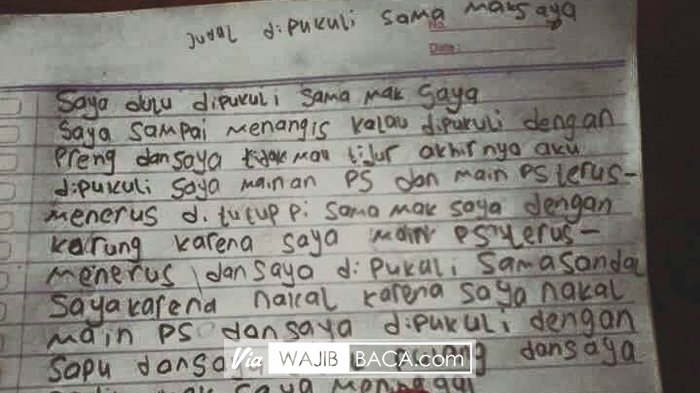 Judul dipukuli sama mak saya
No.
Date:
Saya dulu dipukuli sama mak saya
Saya sampai menangis kalau dipukuli dengan
Preng dan saya tidak mau tidur akhirnya aku
dipukuli saya mainan PS dan main PS terus-
menerus di tutuppi sama mak saya dengan
karung karena saya main PS terus-
menerus dan saya di pukuli sama sandal
saya karena nakal karena saya nakal
main PS dan saya dipukuli dengan
sapu dan saya dan saya
mak saya meninggal
Via WAJIB BACA.com